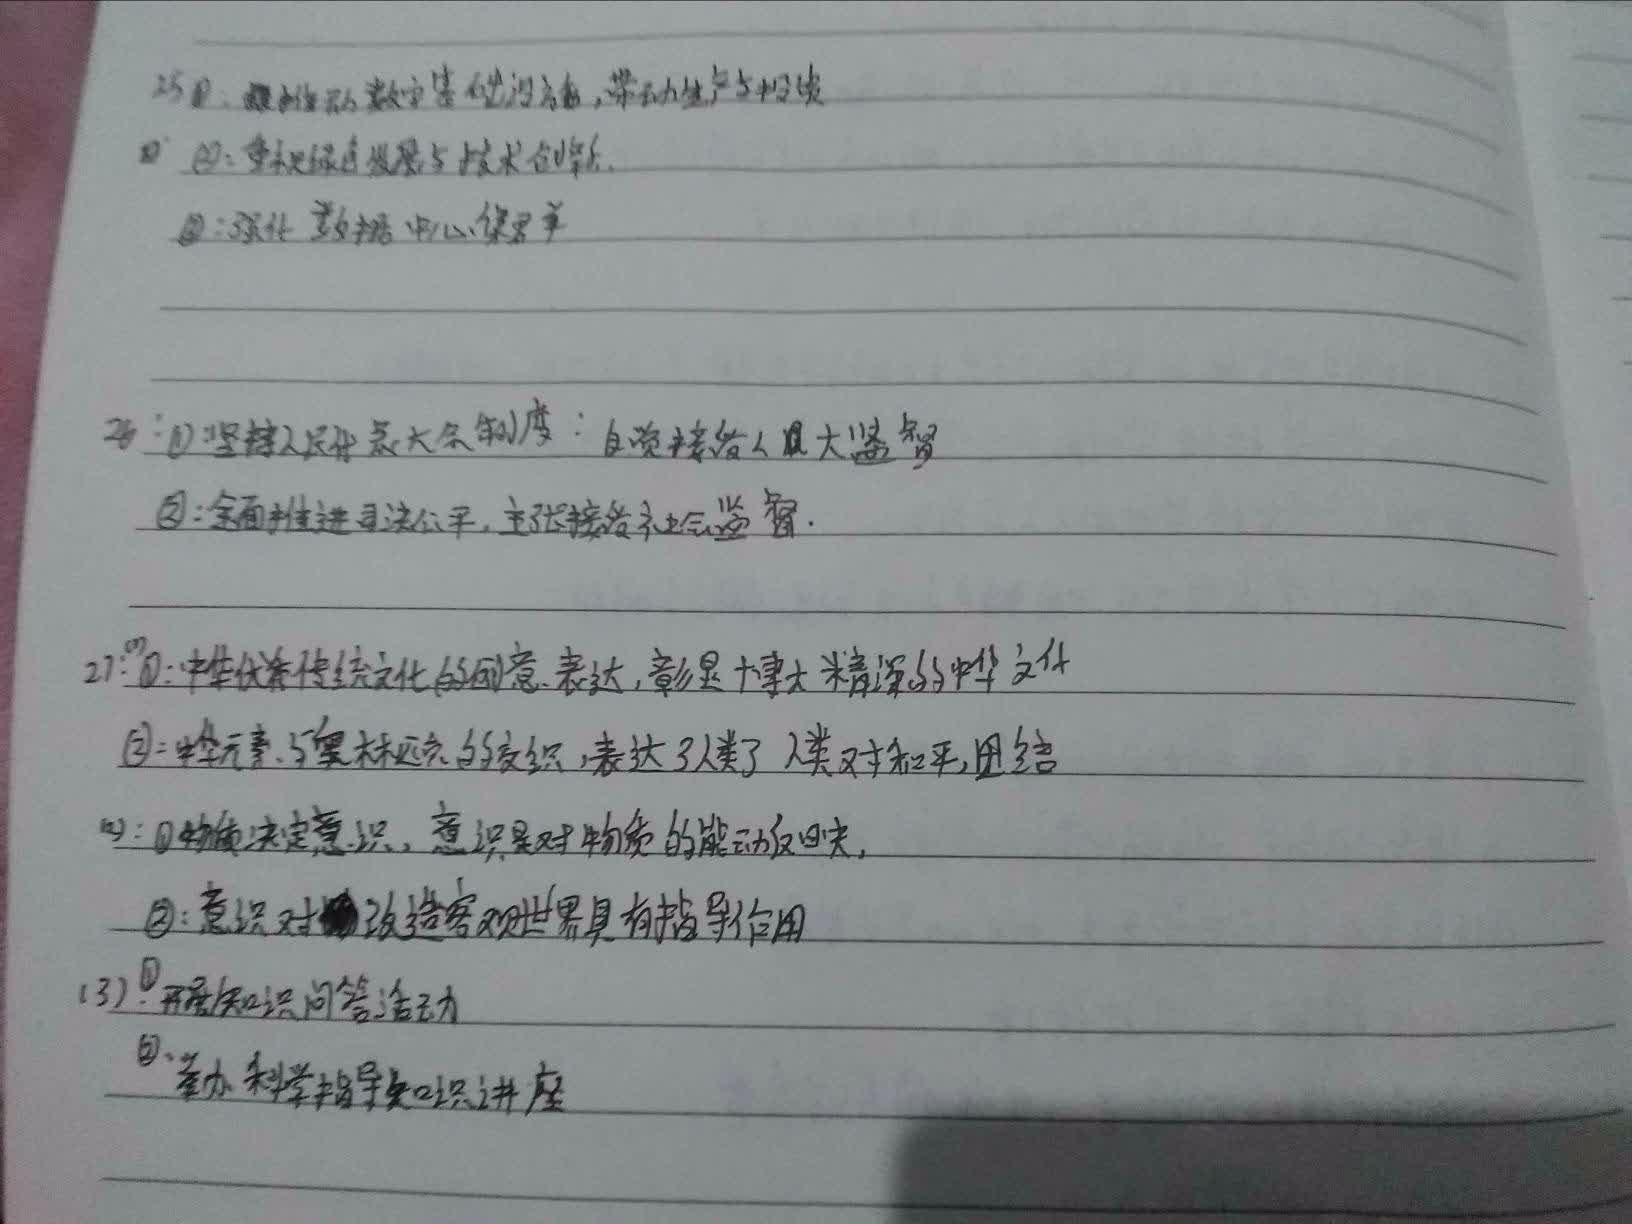 25 ①: 推动数字基础设施,带动生产与投资
②: 重视绿色发展与技术创新.
③: 强化数据中心保障
26: ①坚持人民代表大会制度: 自觉接受人大监督
②: 全面推进司法公平, 主张接受社会监督.
27: (1) ①: 中华优秀传统文化的创意表达, 彰显博大精深的中华文化
②: 中华元素与奥林匹克的交织, 表达了人类了人类对和平, 团结
(2): ①物质决定意识, 意识是对物质的能动反映,
②: 意识对改造客观世界具有指导作用
(3): ①开展知识问答活动
②、举办科学指导知识讲座